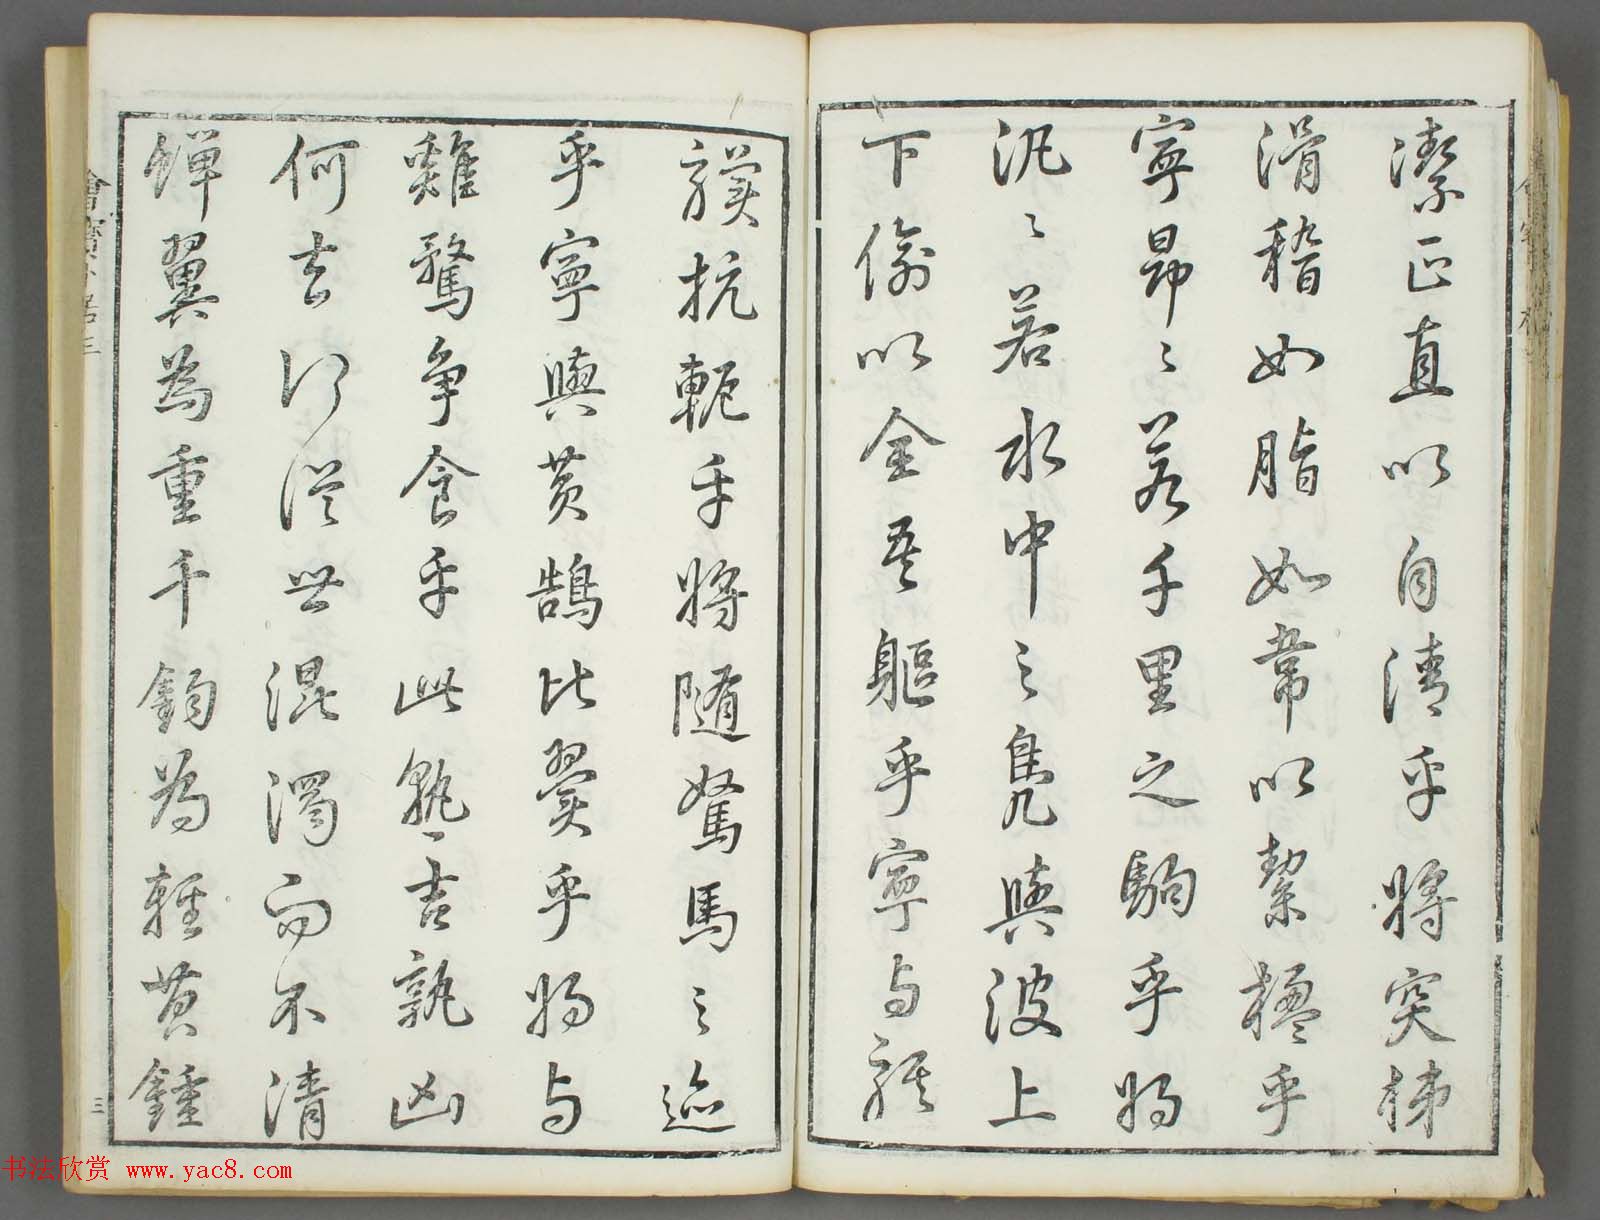 潔正直以自清乎將突梯
滑稽如脂如韋以絜楹乎
寧昂〻若千里之駒乎將
汎〻若水中之鳧與波上
下偷以全吾軀乎寧与騏
驥抗軛乎將隨駑馬之迹
乎寧與黃鵠比翼乎將与
雞鶩爭食乎此孰吉孰凶
何去何從世混濁而不清
蟬翼為重千鈞為輕黃鍾
三
书法欣赏 www.yac8.com